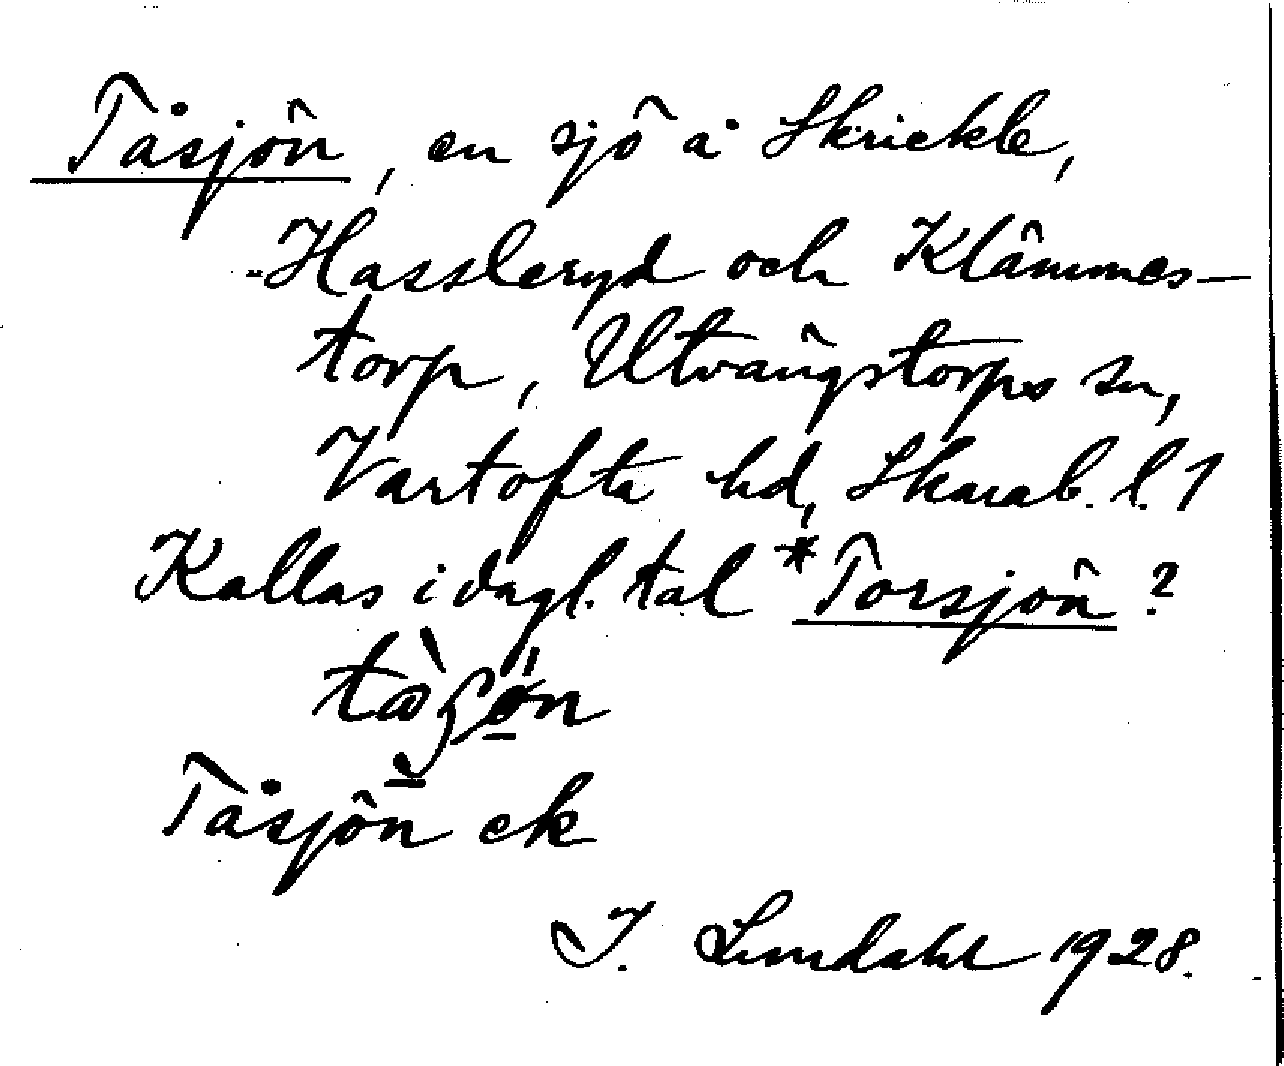 Tåsjön, en sjö å Skrickle,
Hassleryd och Klämmes-
torp, Utvängstorps sn,
Vartofta hd, Skarab. l. 1
Kallas i dagl. tal *Torsjön?
Tåsjön ek
I. Lundahl 1928.